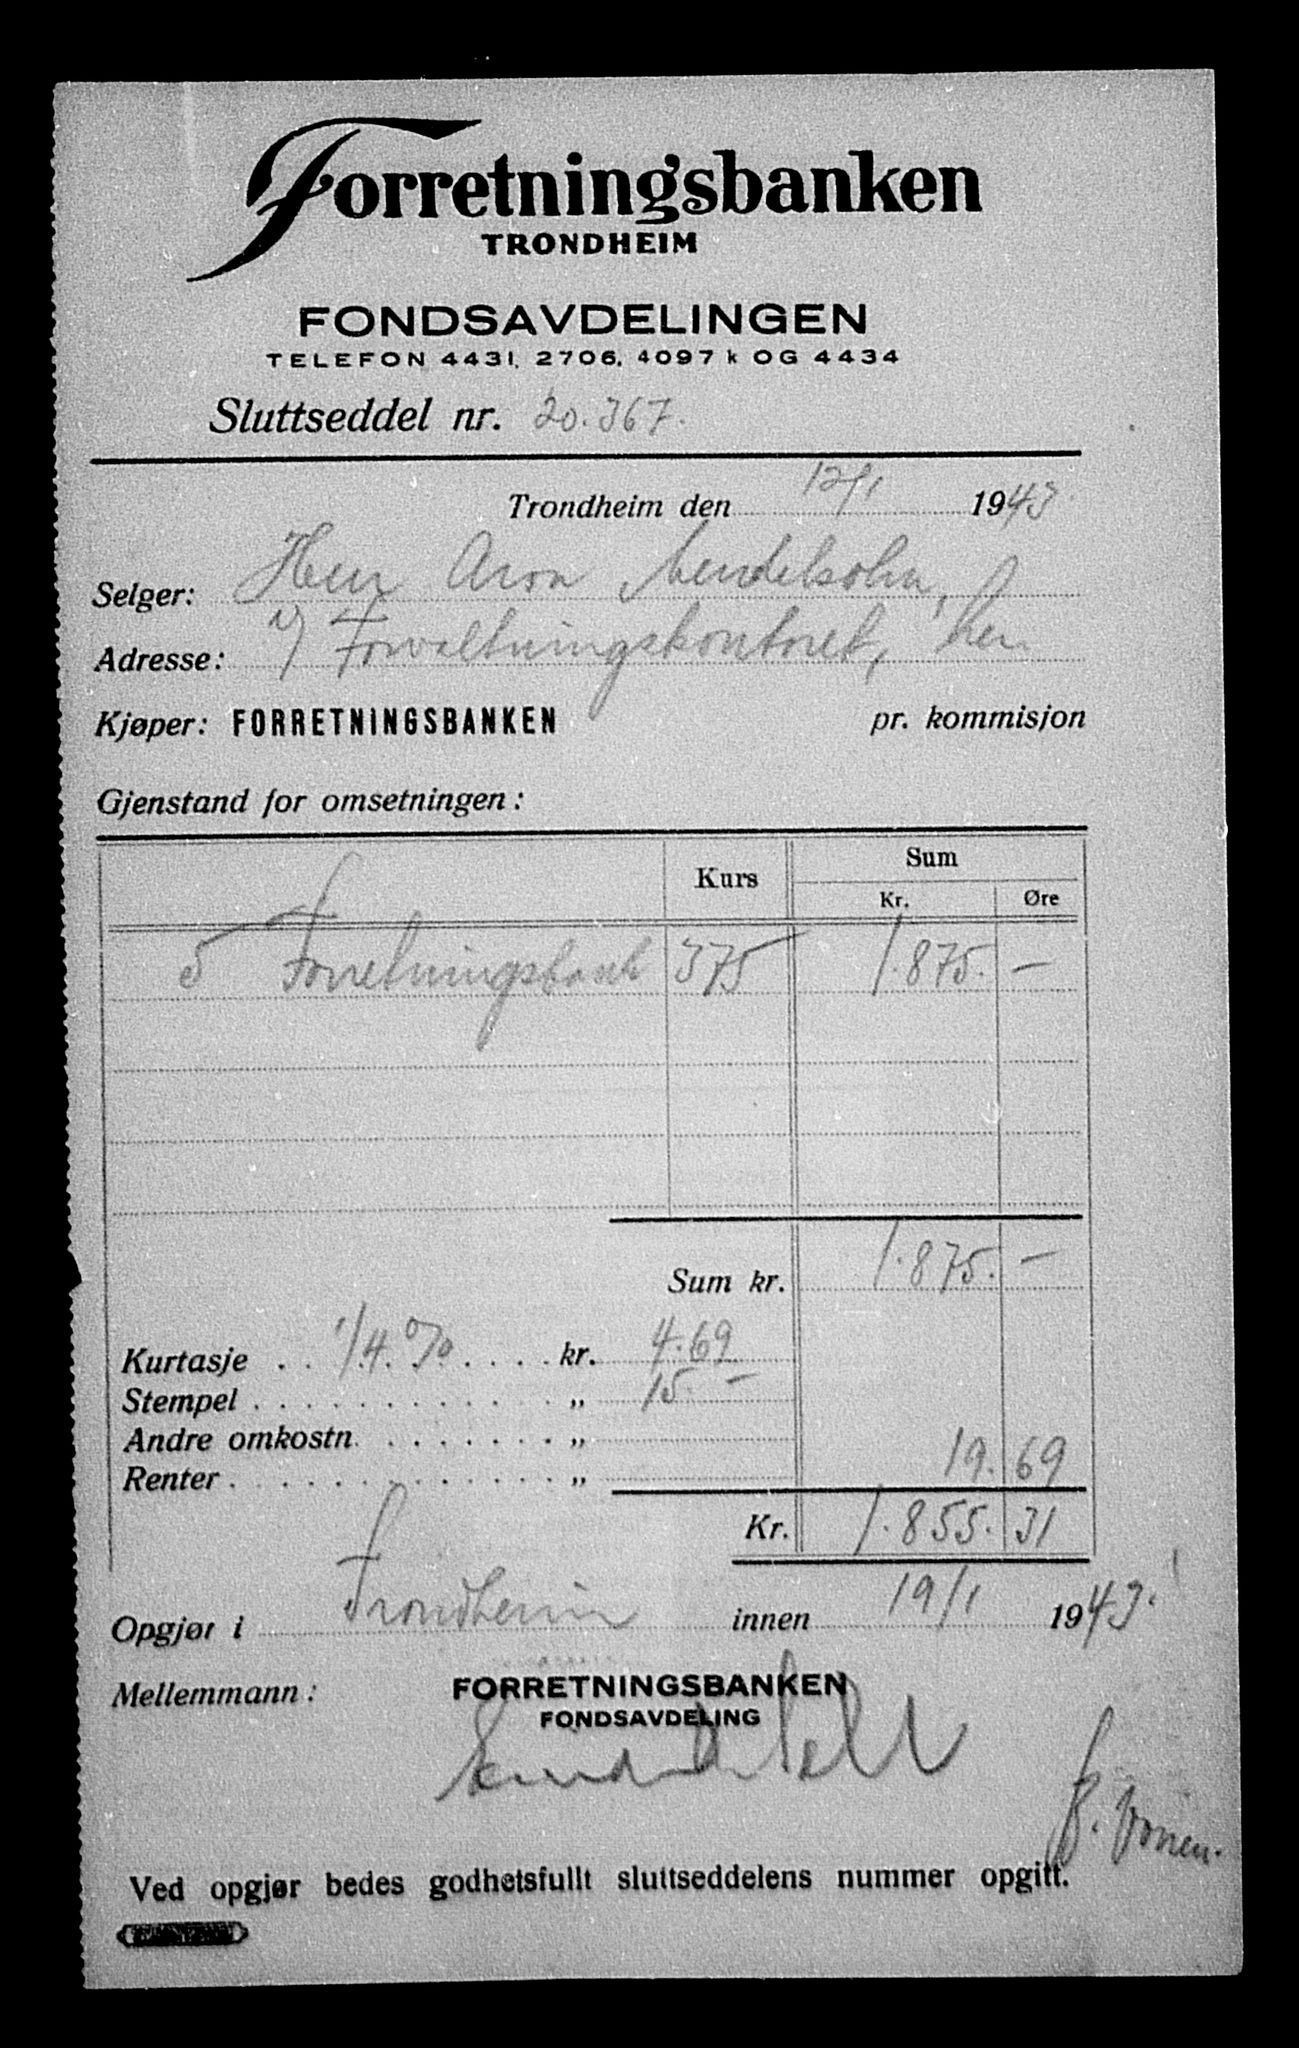 Forretningsbanken
TRONDHEIM
FONDSAVDELINGEN
TELEFON 4431, 2706, 4097 k OG 4434
Sluttseddel nr. 20.367.
Trondheim den 12/1 1943
Selger: Herr Aron Mendelsohn,
Adresse: v/ Forvaltningskontoret, her
Kjøper: FORRETNINGSBANKEN pr. kommisjon
Gjenstand for omsetningen:
Kurs Sum
Kr. Øre
5 Forretningsbank 375 1.875. —
Sum kr. 1.875. —
Kurtasje . . 1/4 % . . . . kr. 4.69
Stempel . . . . . . . . . . . . . „ 15. —
Andre omkostn. . . . . . . . „
19. 69
Renter . . . . . . . . . . . . . . „
Kr. 1.855. 31
Opgjør i Trondheim innen 19/1 1943.
Mellemmann: FORRETNINGSBANKEN
FONDSAVDELING
Ved opgjør bedes godhetsfullt sluttseddelens nummer opgitt.